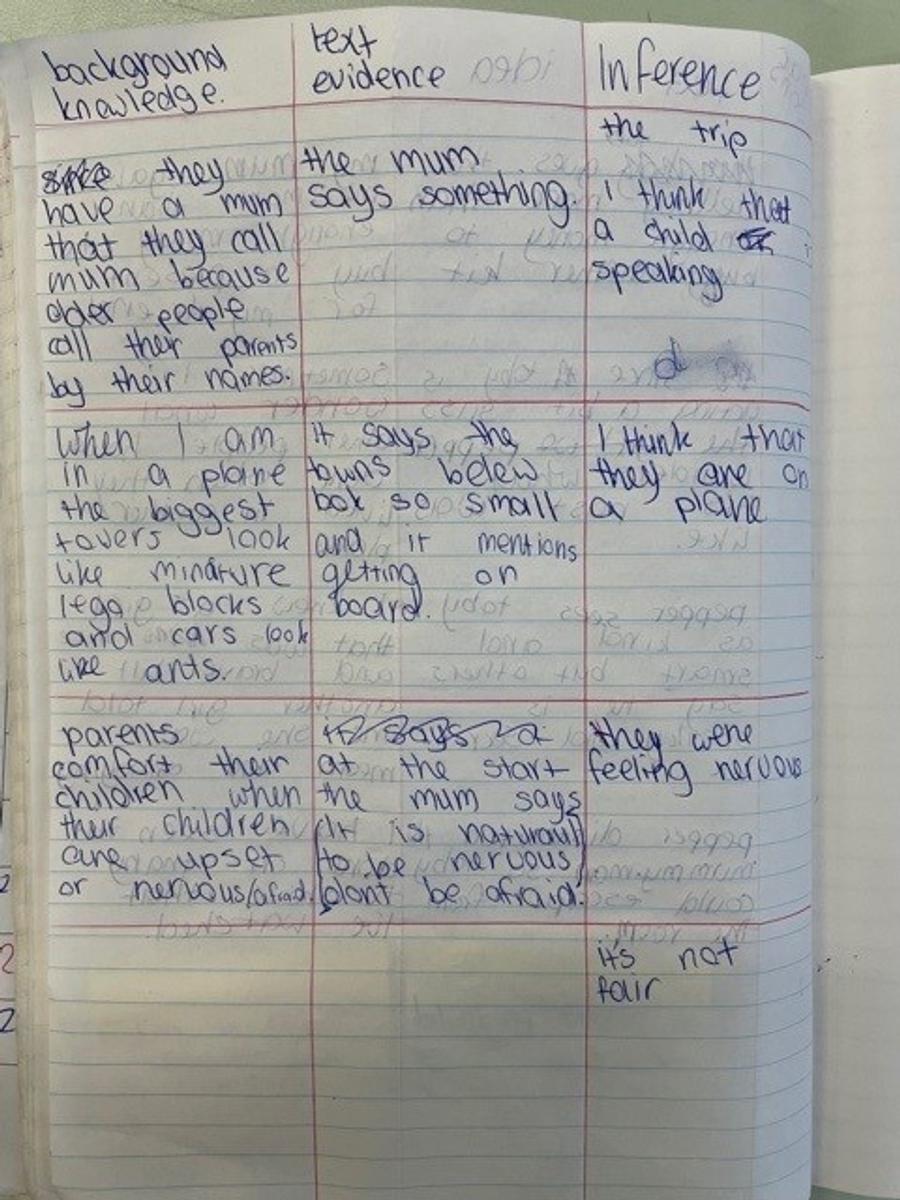 background
knowledge.
text
evidence
Inference
the trip
they
have a mum
that they call
mum because
older people
call their parents
by their names.
the mum
says something.
I think that
a child
speaking
d
When I am
in a plane
the biggest
towers look
like minature
lego blocks
and cars look
like ants.
it says the
towns below
look so small
and it mentions
getting on
board.
I think that
they are on
a plane
parents
comfort their
children when
their children
are upset
or nervous/afraid.
it says a
at the start
the mum says
(It is naturaul
to be nervous
dont be afraid.
they were
feeling nervous
it's not
fair